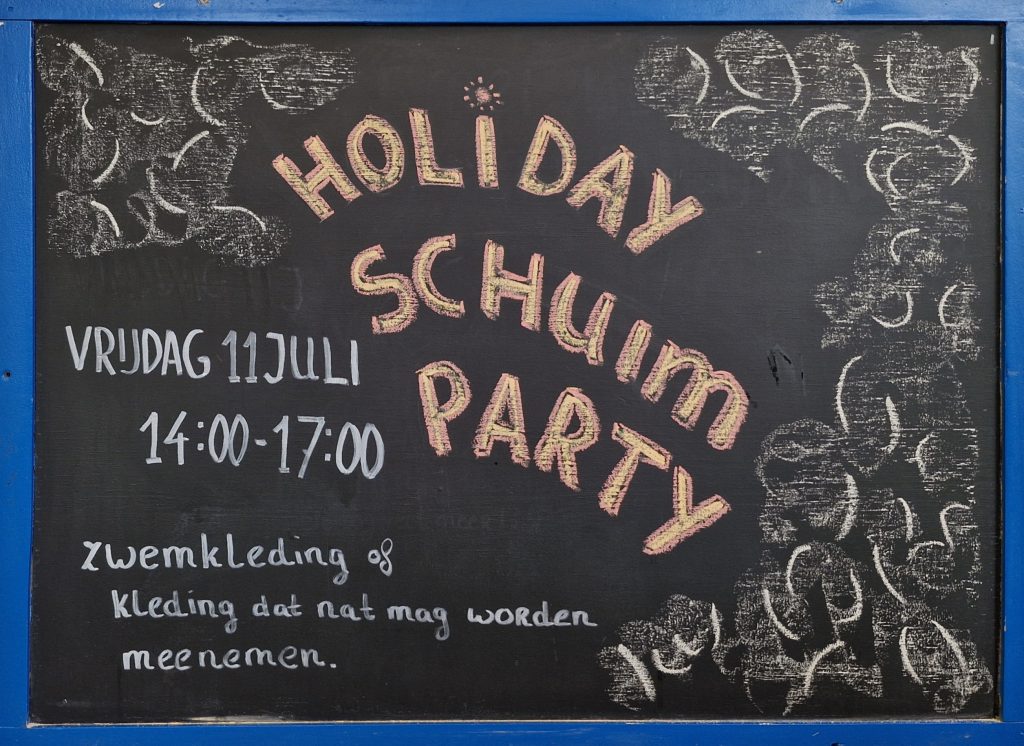 HOLiDAY
SCHUIM
PARTY
VRIJDAG 11 JULI
14:00-17:00
zwemkleding of
kleding dat nat mag worden
meenemen.